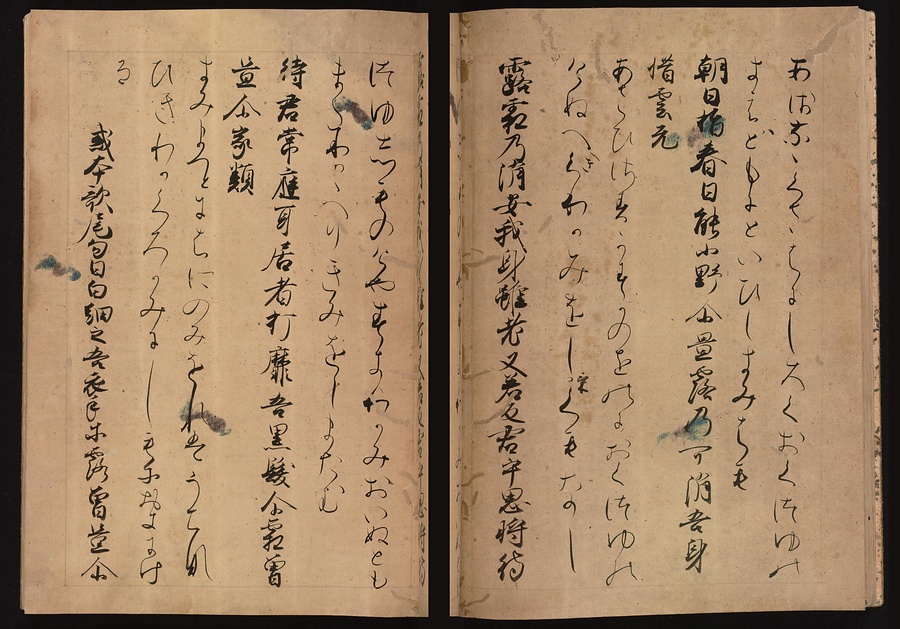 くおくつゆの
といひしきみはも
朝日指春日能小野尓置露乃可消吾身
惜雲无
あさひさすかすかのをのにおくつゆの
けぬへくわかみをしけくもなし
露霜乃消安我身雖老又若反君乎思将待
つゆしものけやすきわかみおいぬとも
またわかゝへりきみをしまたむ
待君常庭耳居者打靡吾黒髪尓霜曽
置尓家類
きみまつとにはにのみをれはうちな
ひきわかくろかみにしもそおきにけ
る
或本歌尾句曰白細之吾衣手尓露曽置尓